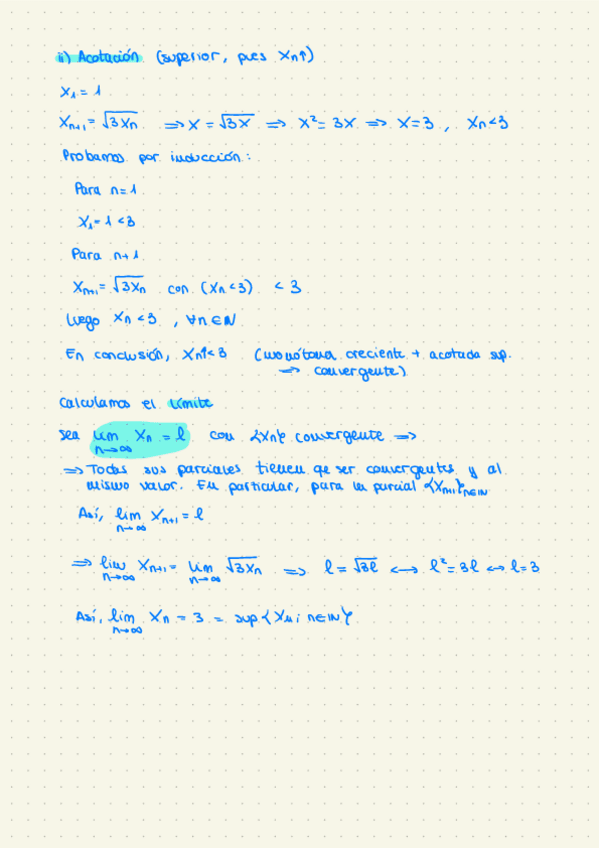 ii) Acotación (superior, pues Xn↑)
X₁ = 1
Xn+1 = √3Xn ⇒ X = √3X ⇒ X² = 3X ⇒ X = 3 , Xn < 3
Probamos por inducción:
Para n = 1
X₁ = 1 < 3
Para n+1
Xn+1 = √3Xn con (Xn < 3) < 3
Luego Xn < 3 , ∀n ∈ ℕ
En conclusión, Xn↑ < 3 (monótona creciente + acotada sup.
⇒ convergente)
Calculamos el límite
Sea lim n→∞ Xn = l con {Xn} convergente ⇒
⇒ Todas sus parciales tienen que ser convergentes y al
mismo valor. En particular, para la parcial {Xn+1}n∈ℕ
Así, lim n→∞ Xn+1 = l
⇒ lim n→∞ Xn+1 = lim n→∞ √3Xn ⇒ l = √3l ↔ l² = 3l ↔ l = 3
Así, lim n→∞ Xn = 3 = sup{Xn ; n ∈ ℕ}